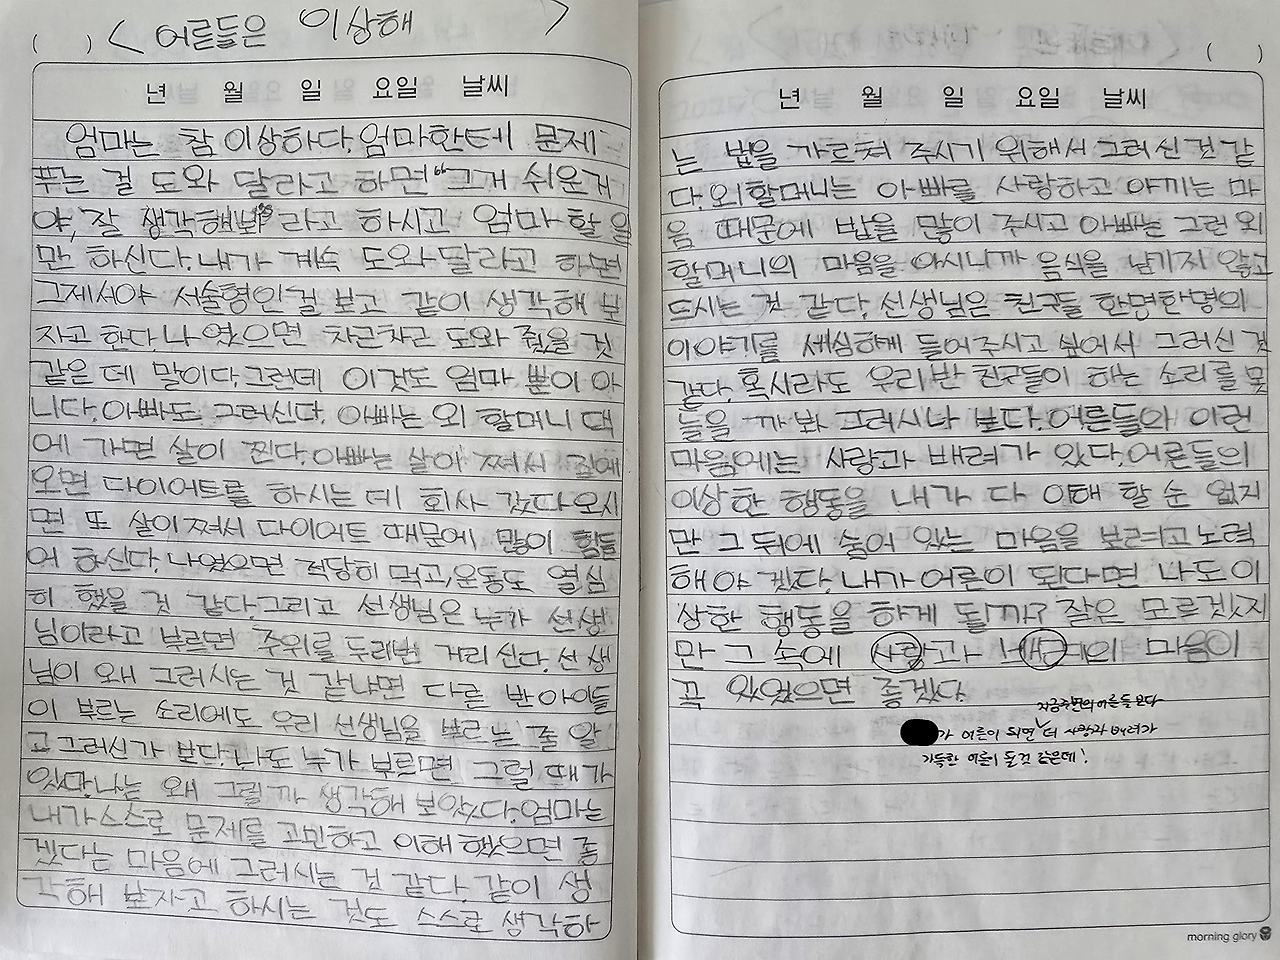 ( ) < 어른들은 이상해 >
년 월 일 요일 날씨
엄마는 참 이상하다. 엄마한테 문제
푸는 걸 도와 달라고 하면 "그거 쉬운거
야, 잘 생각해봐"라고 하시고 엄마 할 일
만 하신다. 내가 계속 도와 달라고 하면
그제서야 서술형인 걸 보고 같이 생각해 보
자고 한다. 나 였으면 차근차근 도와 줬을 것
같은 데 말이다. 그런데 이것도 엄마 뿐이 아
니다. 아빠도 그러신다. 아빠는 외 할머니 댁
에 가면 살이 찐다. 아빠는 살이 쪄서 집에
오면 다이어트를 하시는 데 회사 갔다 오시
면 또 살이 쪄서 다이어트 때문에 많이 힘들
어 하신다. 나였으면 적당히 먹고, 운동도 열심
히 했을 것 같다. 그리고 선생님은 누가 선생
님이라고 부르면 주위를 두리번 거리 신다. 선생
님이 왜 그러시는 것 같냐면 다른 반 아이들
이 부르는 소리에도 우리 선생님을 부르는 줄 알
고 그러신가 보다. 나도 누가 부르면 그럴 때가
있다. 나는 왜 그럴까 생각해 보았다. 엄마는
내가 스스로 문제를 고민하고 이해 했으면 좋
겠다는 마음에 그러시는 것 같다. 같이 생
각해 보자고 하시는 것도 스스로 생각하
( )
년 월 일 요일 날씨
는 법을 가르쳐 주시기 위해서 그러신 것 같
다. 외할머니는 아빠를 사랑하고 아끼는 마
음 때문에 밥을 많이 주시고 아빠는 그런 외
할머니의 마음을 아시니까 음식을 남기지 않고
드시는 것 같다. 선생님은 친구들 한명한명의
이야기를 세심하게 들어주시고 싶어서 그러신 것
같다. 혹시라도 우리반 친구들이 하는 소리를 못
들을 까봐 그러시나 보다. 어른들와 이런
마음에는 사랑과 배려가 있다. 어른들의
이상한 행동을 내가 다 이해 할 순 없지
만 그 뒤에 숨어 있는 마음을 보려고 노력
해야 겠다. 내가 어른이 된다면 나도 이
상한 행동을 하게 될까? 잘은 모르겠지
만 그 속에 사랑과 배려의 마음이
꼭 있었으면 좋겠다.
지금주변의 어른들 보다
가 어른이 되면 더 사랑과 배려가
가득한 어른이 될것 같은데!
morning glory